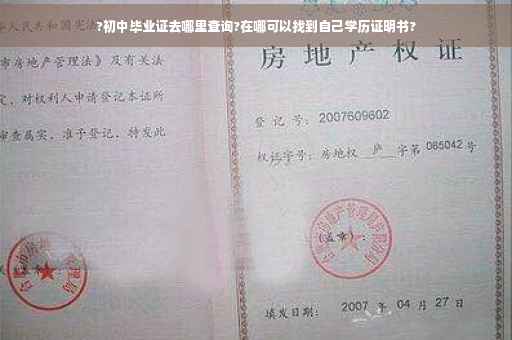 ?初中毕业证去哪里查询?在哪可以找到自己学历证明书?
人民共和国宪法
市房地产管理法》及有关法
定，对权利人申请登记本证所
审查属实，准予登记，特发此
房地产权证
登记号：2007609602
权证字号：房地权 庐 字第 085042 号
(盖章)：
填发日期： 2007 年 04 月 27 日